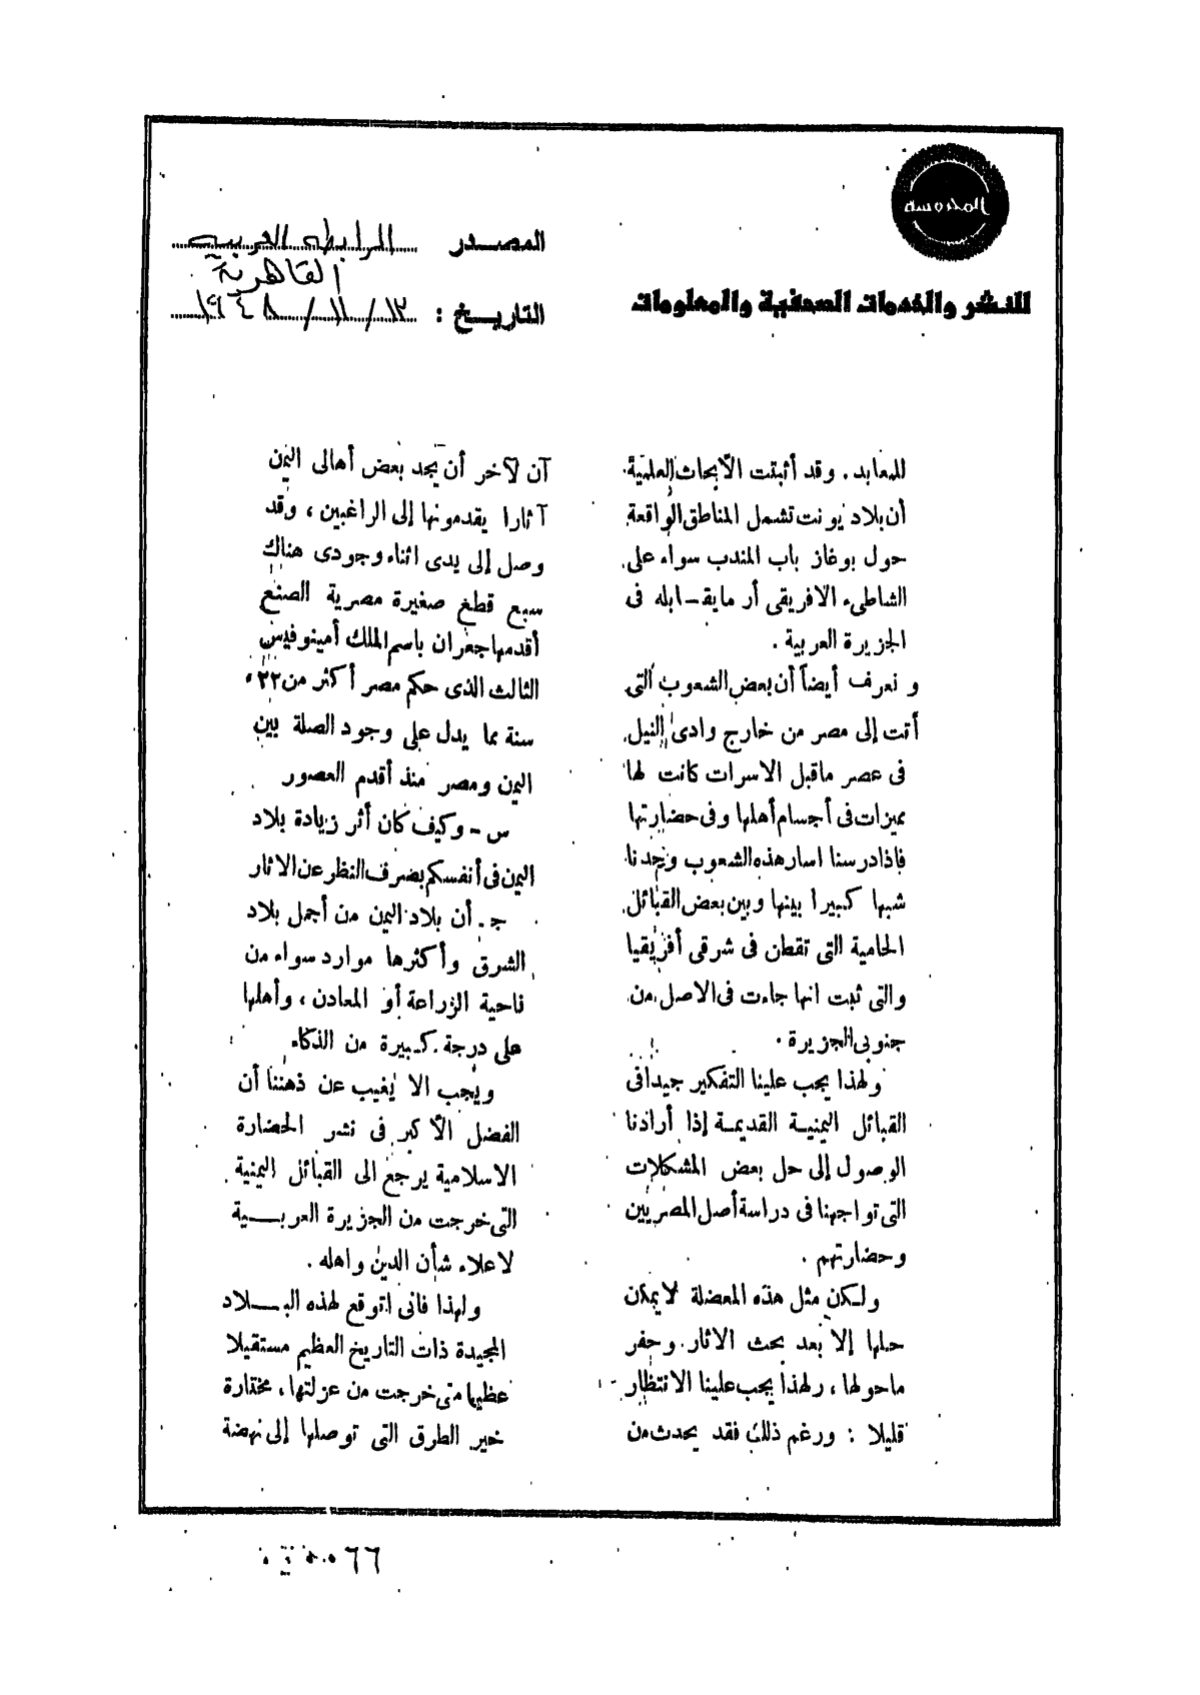 المصدر الرابطه العربيه
القاهرية
التاريخ : ١٣/١١/١٩٤٨
للنشر والخدمات الصحفية والمعلومات
للمعابد. وقد أثبتت الأبحاث العلمية
أن بلاد يونت تشمل المناطق الواقعة
حول بوغاز باب المندب سواء على
الشاطىء الافريقى أر مايقـابله فى
الجزيرة العربية .
و نعرف أيضاً أن بعض الشعوب التى
أتت إلى مصر من خارج وادى النيل
فى عصر ماقبل الاسرات كانت لها
مميزات فى أجسام أهلها وفى حضارتها
فاذا درسنا اسار هذه الشعوب وجدنا
شبها كبيرا بينها وبين بعض القبائل
الحامية التى تقطن فى شرقى أفريقيا
والتى ثبت انها جاءت فى الاصل من
جنوبى الجزيرة .
ولهذا يجب علينا التفكير جيدا فى
القبائل اليمنيـة القديمـة إذا أرادنا
الوصول إلى حل بعض المشكلات
التى تواجهنا فى دراسة أصل المصريين
وحضارتهم .
ولكن مثل هذه المعضلة لا يمكن
حلها إلا بعد بحث الاثار وحفر
ماحولها ، رلهذا يجب علينا الانتظار
قليلا : ورغم ذلك فقد يحدث من
آن لآخر أن يجد بعض أهالى اليمن
آثارا يقدمونها إلى الراغبين ، وقد
وصل إلى يدى اثناء وجودى هناك
سبع قطع صغيرة مصرية الصنع
أقدمها جعران باسم الملك أمينوفيس
الثالث الذى حكم مصر أكثر من ٢٢٠
سنة مما يدل على وجود الصلة بين
اليمن ومصر منذ أقدم العصور
س - وكيف كان أثر زيادة بلاد
اليمن فى أنفسكم بصرف النظر عن الاثار
جـ . أن بلاد اليمن من أجمل بلاد
الشرق وأكثرها موارد سواء من
ناحية الزراعة أو المعادن ، وأهلها
على درجة كـبيرة من الذكاء
ويجب الا يغيب عن ذهننا أن
الفضل الأكبر فى نشر الحضارة
الاسلامية يرجع الى القبائل اليمنية
التى خرجت من الجزيرة العربـــية
لاعلاء شأن الدين واهله .
ولهذا فانى اتوقع لهذه البـــلاد
المجيدة ذات التاريخ العظيم مستقيلا
عظيما متى خرجت من عزلتها ، مختارة
خير الطرق التى توصلها إلى نهضة